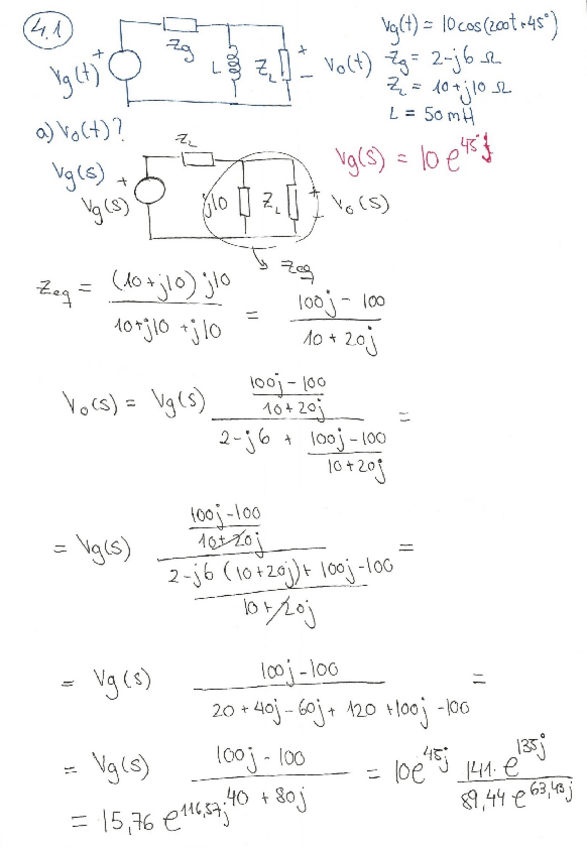 4.1
Zg L ZL + - Vo(t)
Vg(t) +
Vg(t) = 10cos(200t+45°)
Zg = 2-j6 Ω
ZL = 10+j10 Ω
L = 50mH
a) Vo(t)?
Vg(s) = 10 e^45j
ZL
Vg(s) +
Vg(s) j10 ZL + - Vo(s)
Zeq
Zeq = (10+j10) j10 / (10+j10+j10) = (100j-100) / (10+20j)
Vo(s) = Vg(s) ((100j-100) / (10+20j)) / (2-j6 + (100j-100) / (10+20j)) =
= Vg(s) ((100j-100) / (10+20j)) / ((2-j6 (10+20j) + 100j-100) / (10+20j)) =
= Vg(s) (100j-100) / (20+40j-60j+120+100j-100) =
= Vg(s) (100j-100) / (40+80j) = 10e^45j (141·e^135j) / (89,44 e^63,43j)
= 15,76 e^116,57j